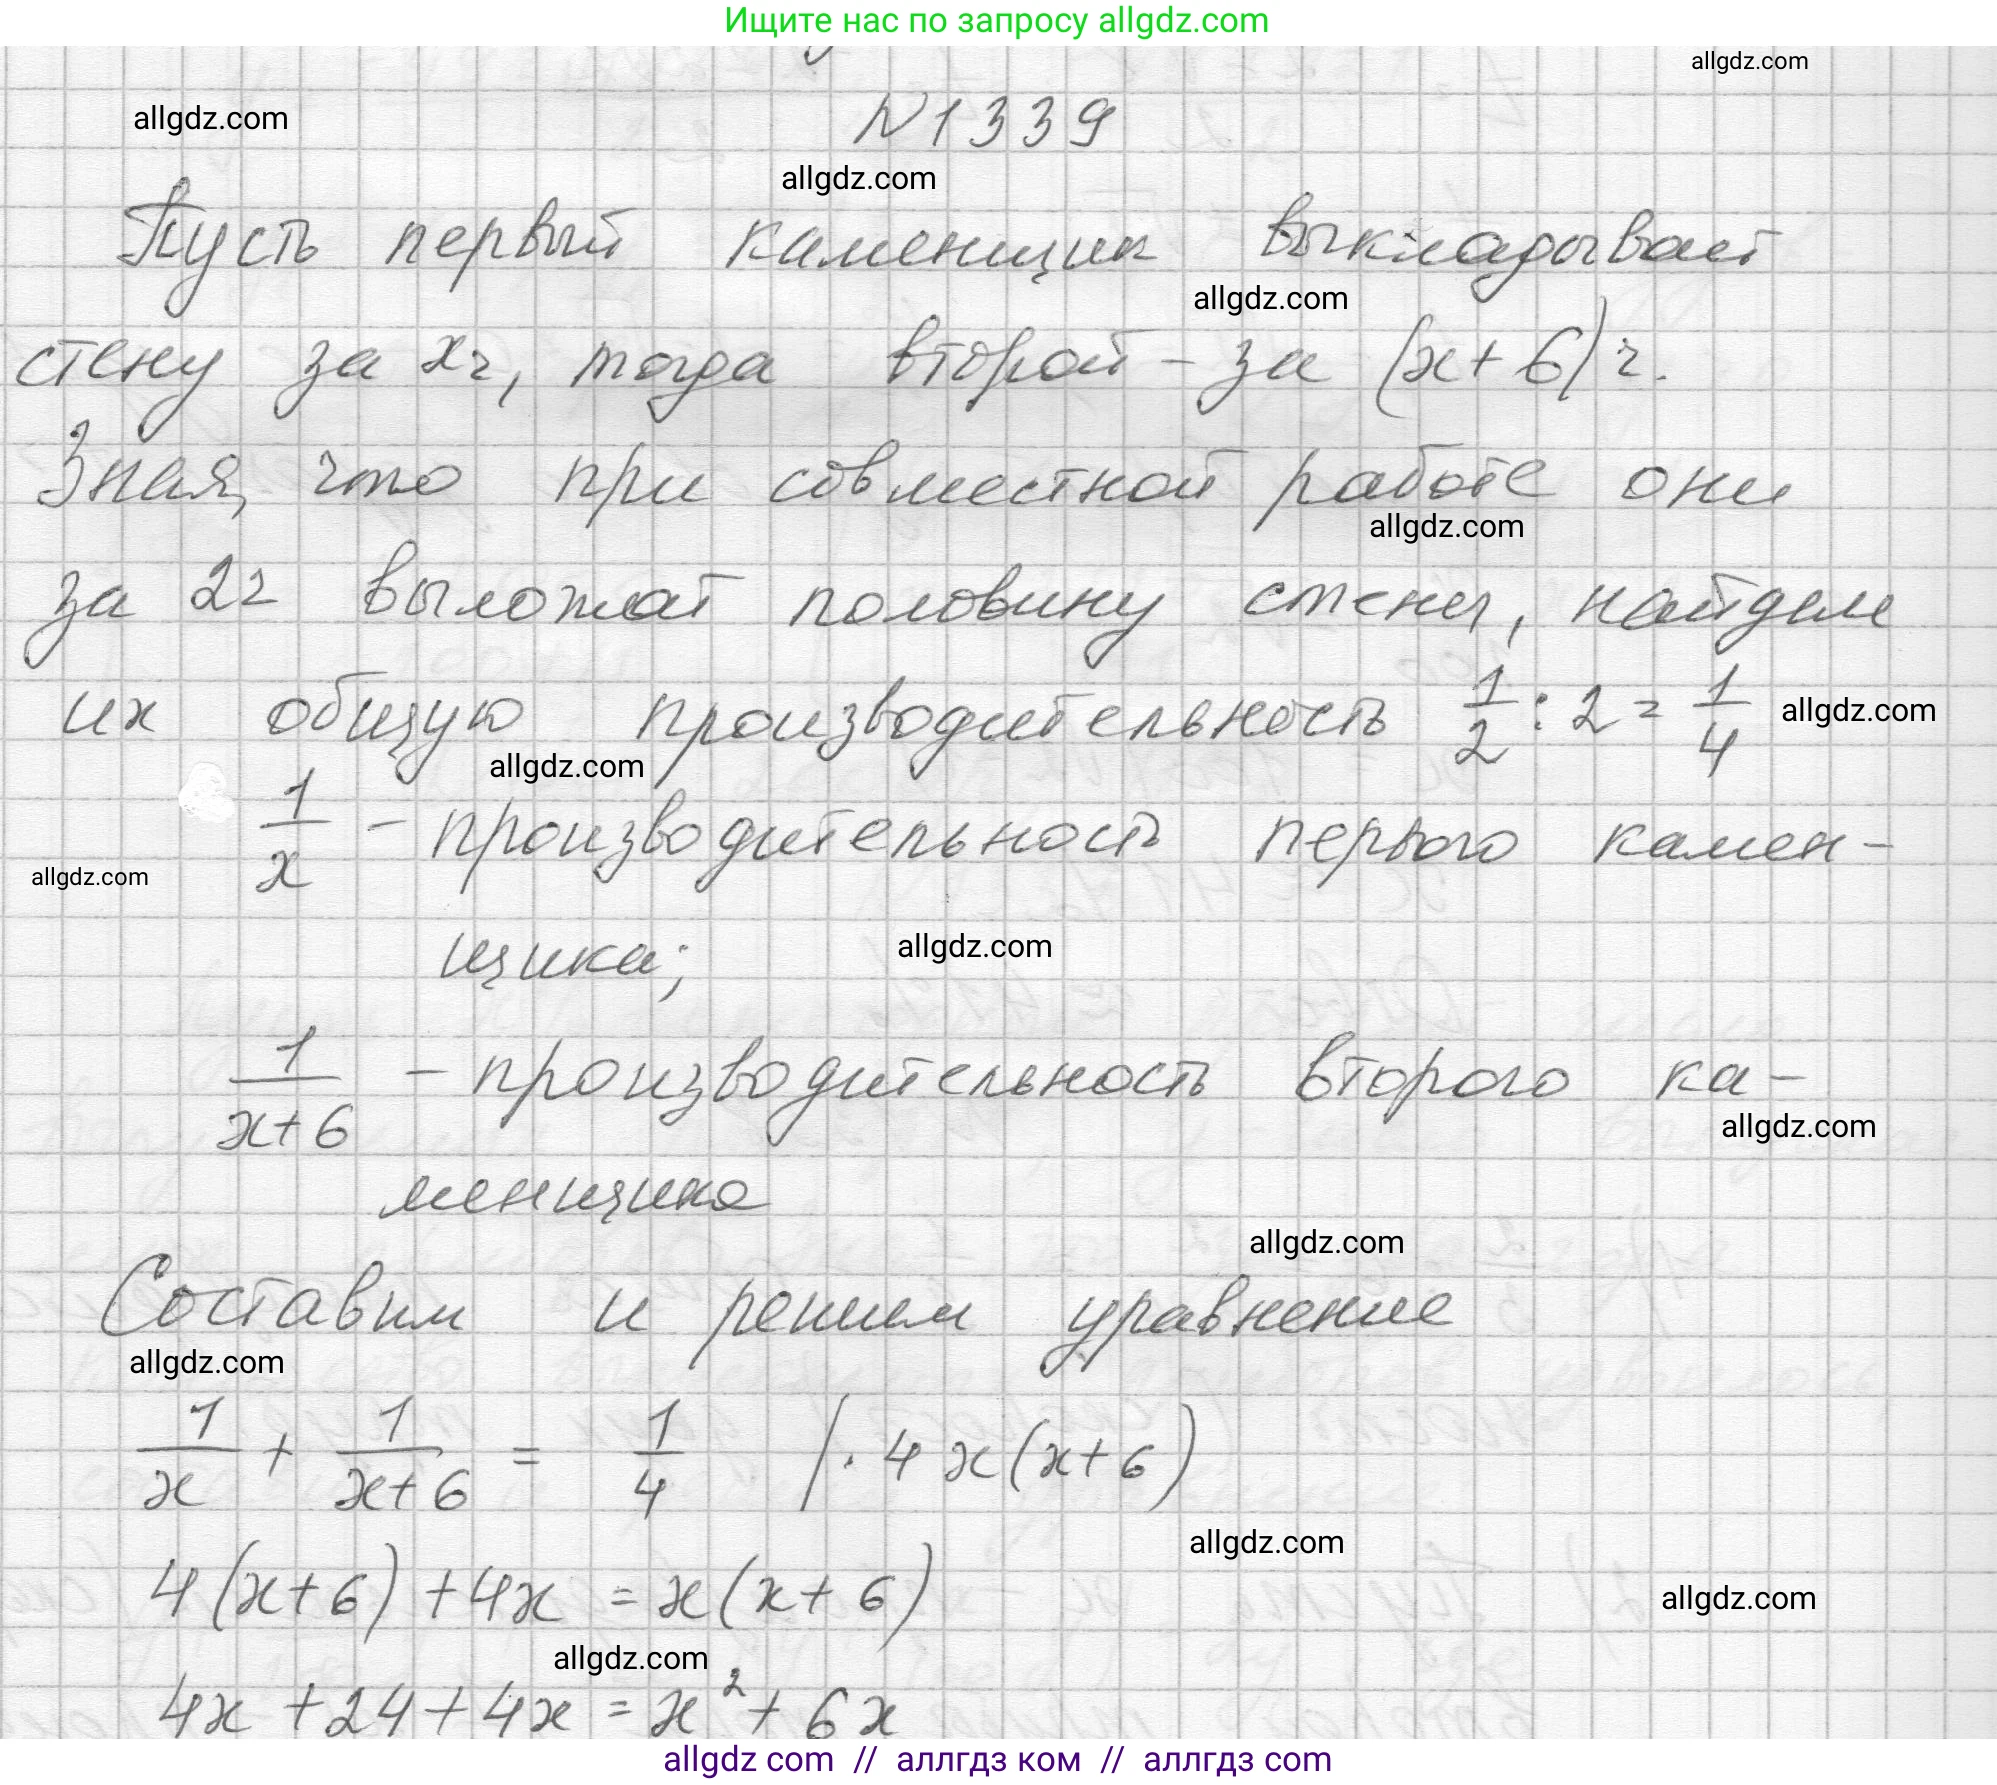 Ищите нас по запросу allgdz.com
allgdz.com
allgdz.com
N1339
allgdz.com
Пусть первый каменщик выкладывает
allgdz.com
стену за xч, тогда второй - за (x+6)ч.
Зная, что при совместной работе они
allgdz.com
за 2ч выложат половину стены, найдем
их общую производительность 1/2 : 2 = 1/4
allgdz.com
allgdz.com
1/x - производительность первого камен-
allgdz.com
щика;
allgdz.com
1/(x+6) - производительность второго ка-
allgdz.com
менщика
allgdz.com
Составим и решим уравнение
allgdz.com
1/x + 1/(x+6) = 1/4 | · 4x(x+6)
allgdz.com
4(x+6) + 4x = x(x+6)
allgdz.com
allgdz.com
4x + 24 + 4x = x² + 6x
allgdz com // аллгдз ком // аллгдз com